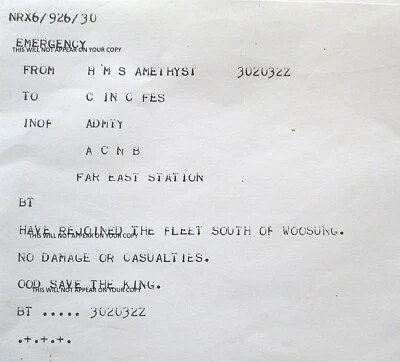 NRX6/926/30
EMERGENCY
THIS WILL NOT APPEAR ON YOUR COPY
FROM H M S AMETHYST 302032Z
TO C IN C FES
INOF ADMTY
A C N B
FAR EAST STATION
BT
HAVE REJOINED THE FLEET SOUTH OF WOOSUNG.
THIS WILL NOT APPEAR ON YOUR COPY
NO DAMAGE OR CASUALTIES.
OOD SAVE THE KING.
THIS WILL NOT APPEAR ON YOUR COPY
BT ..... 302032Z
.+.+.+.